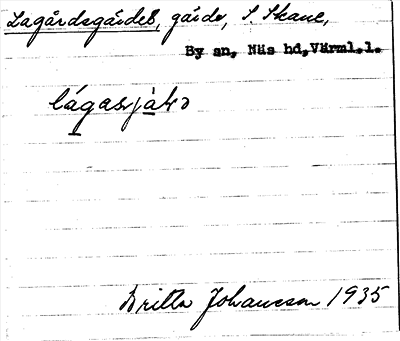 Lagårdsgärdet, gärde, S. Skane,
By sn, Näs hd, Värml. l.
lágasjàḷə
Britta Johansson 1935